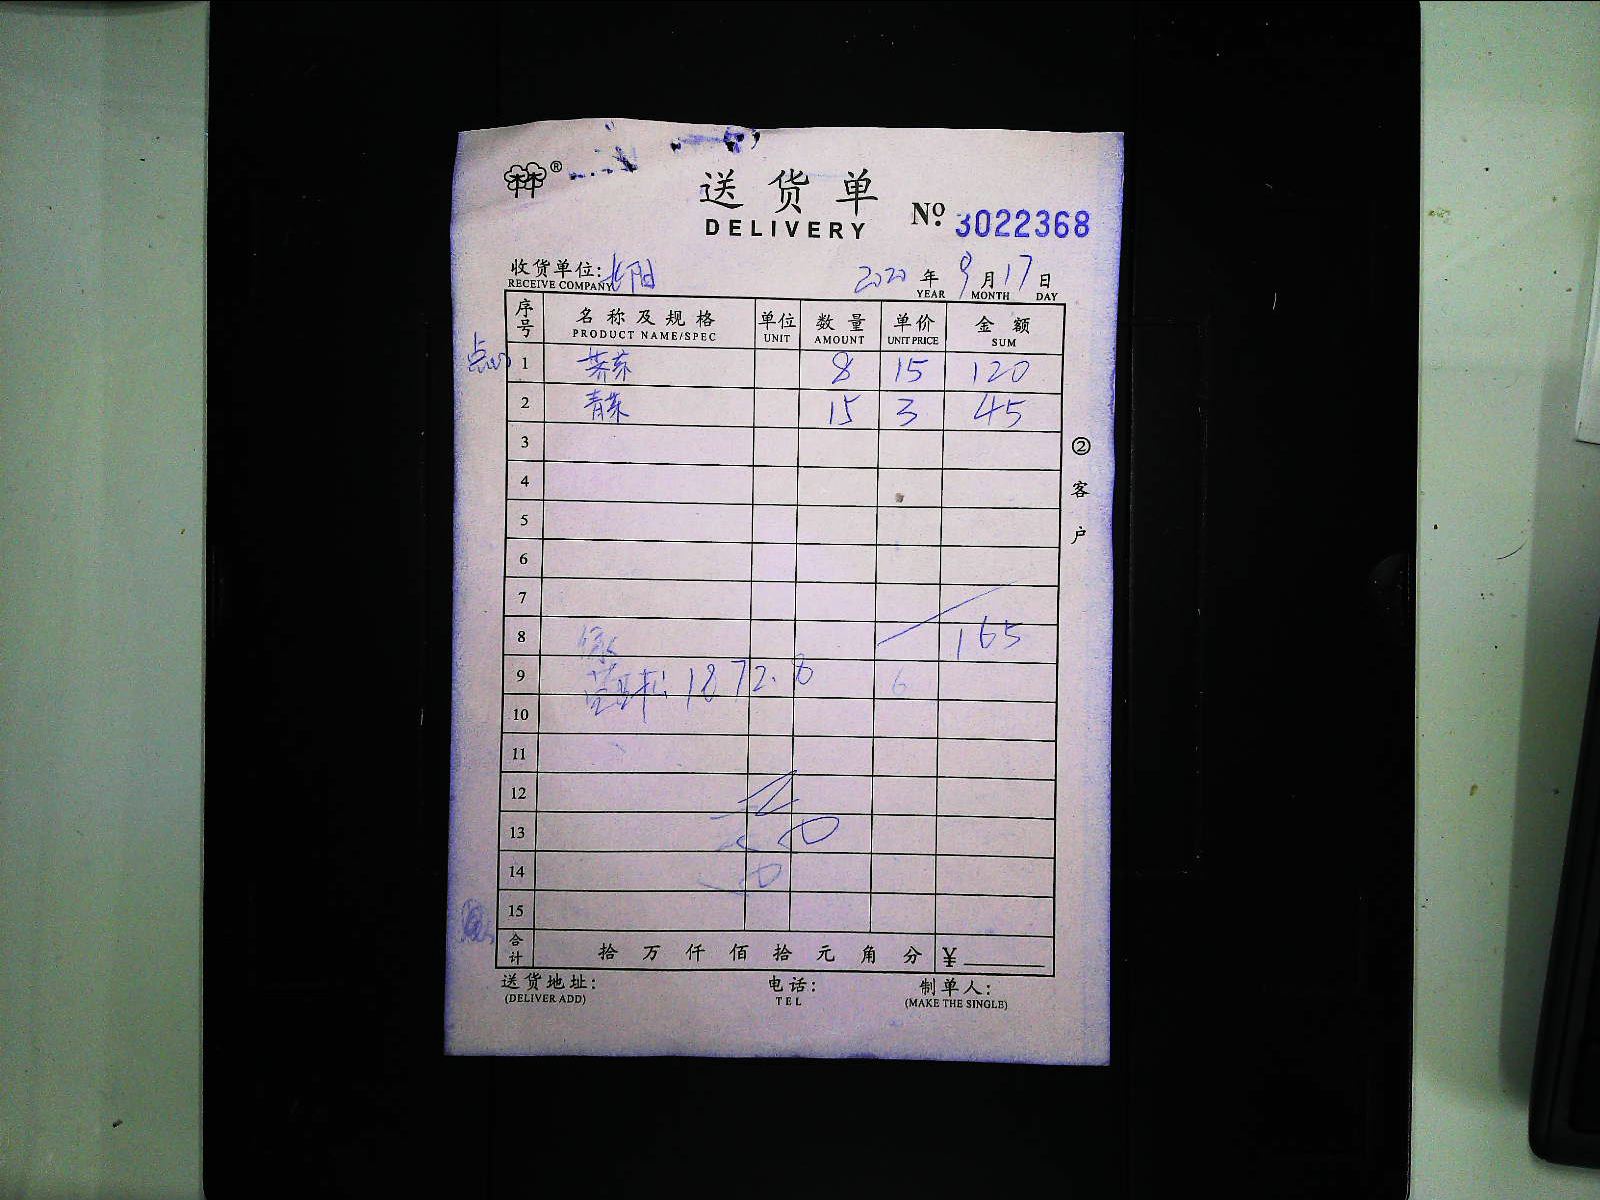 ®
送货单
DELIVERY
Nº 3022368
收货单位:
RECEIVE COMPANY
2020 年 9 月 17 日
YEAR MONTH DAY
序号 名称及规格 单位 数量 单价 金额
PRODUCT NAME/SPEC UNIT AMOUNT UNIT PRICE SUM
点心
1 荠菜 8 15 120
2 青菜 15 3 45
3
4
5
6
7
8 165
9 1872.8
10
11
12
13
14
15
合计 拾 万 仟 佰 拾 元 角 分 ¥
② 客户
送货地址: 电话: 制单人:
(DELIVER ADD) TEL (MAKE THE SINGLE)